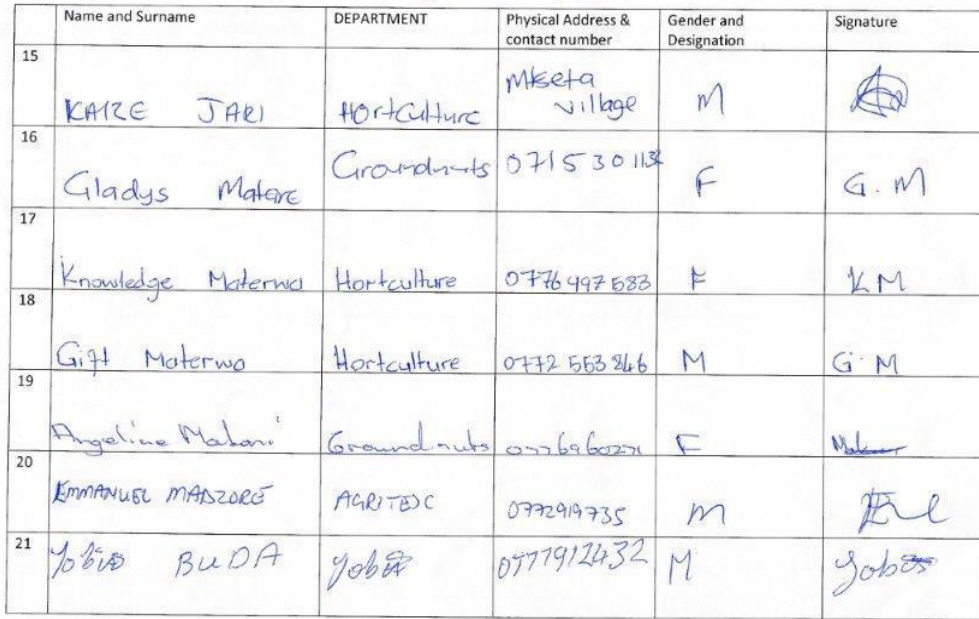 Name and Surname DEPARTMENT Physical Address & contact number Gender and Designation Signature
15 KAIZE JARI HOrtCulture Mketa village M
16 Gladys Matare Groundnuts 0715301134 F G.M
17 Knowledge Materwa Hortculture 0776497583 F KM
18 Gift Materwa Hortculture 0772 553 846 M G.M
19 Angeline Matani Groundnuts 0776960271 F
20 EMMANUEL MADZORE AGRITEX 0772919735 M
21 BUDA 0777912432 M